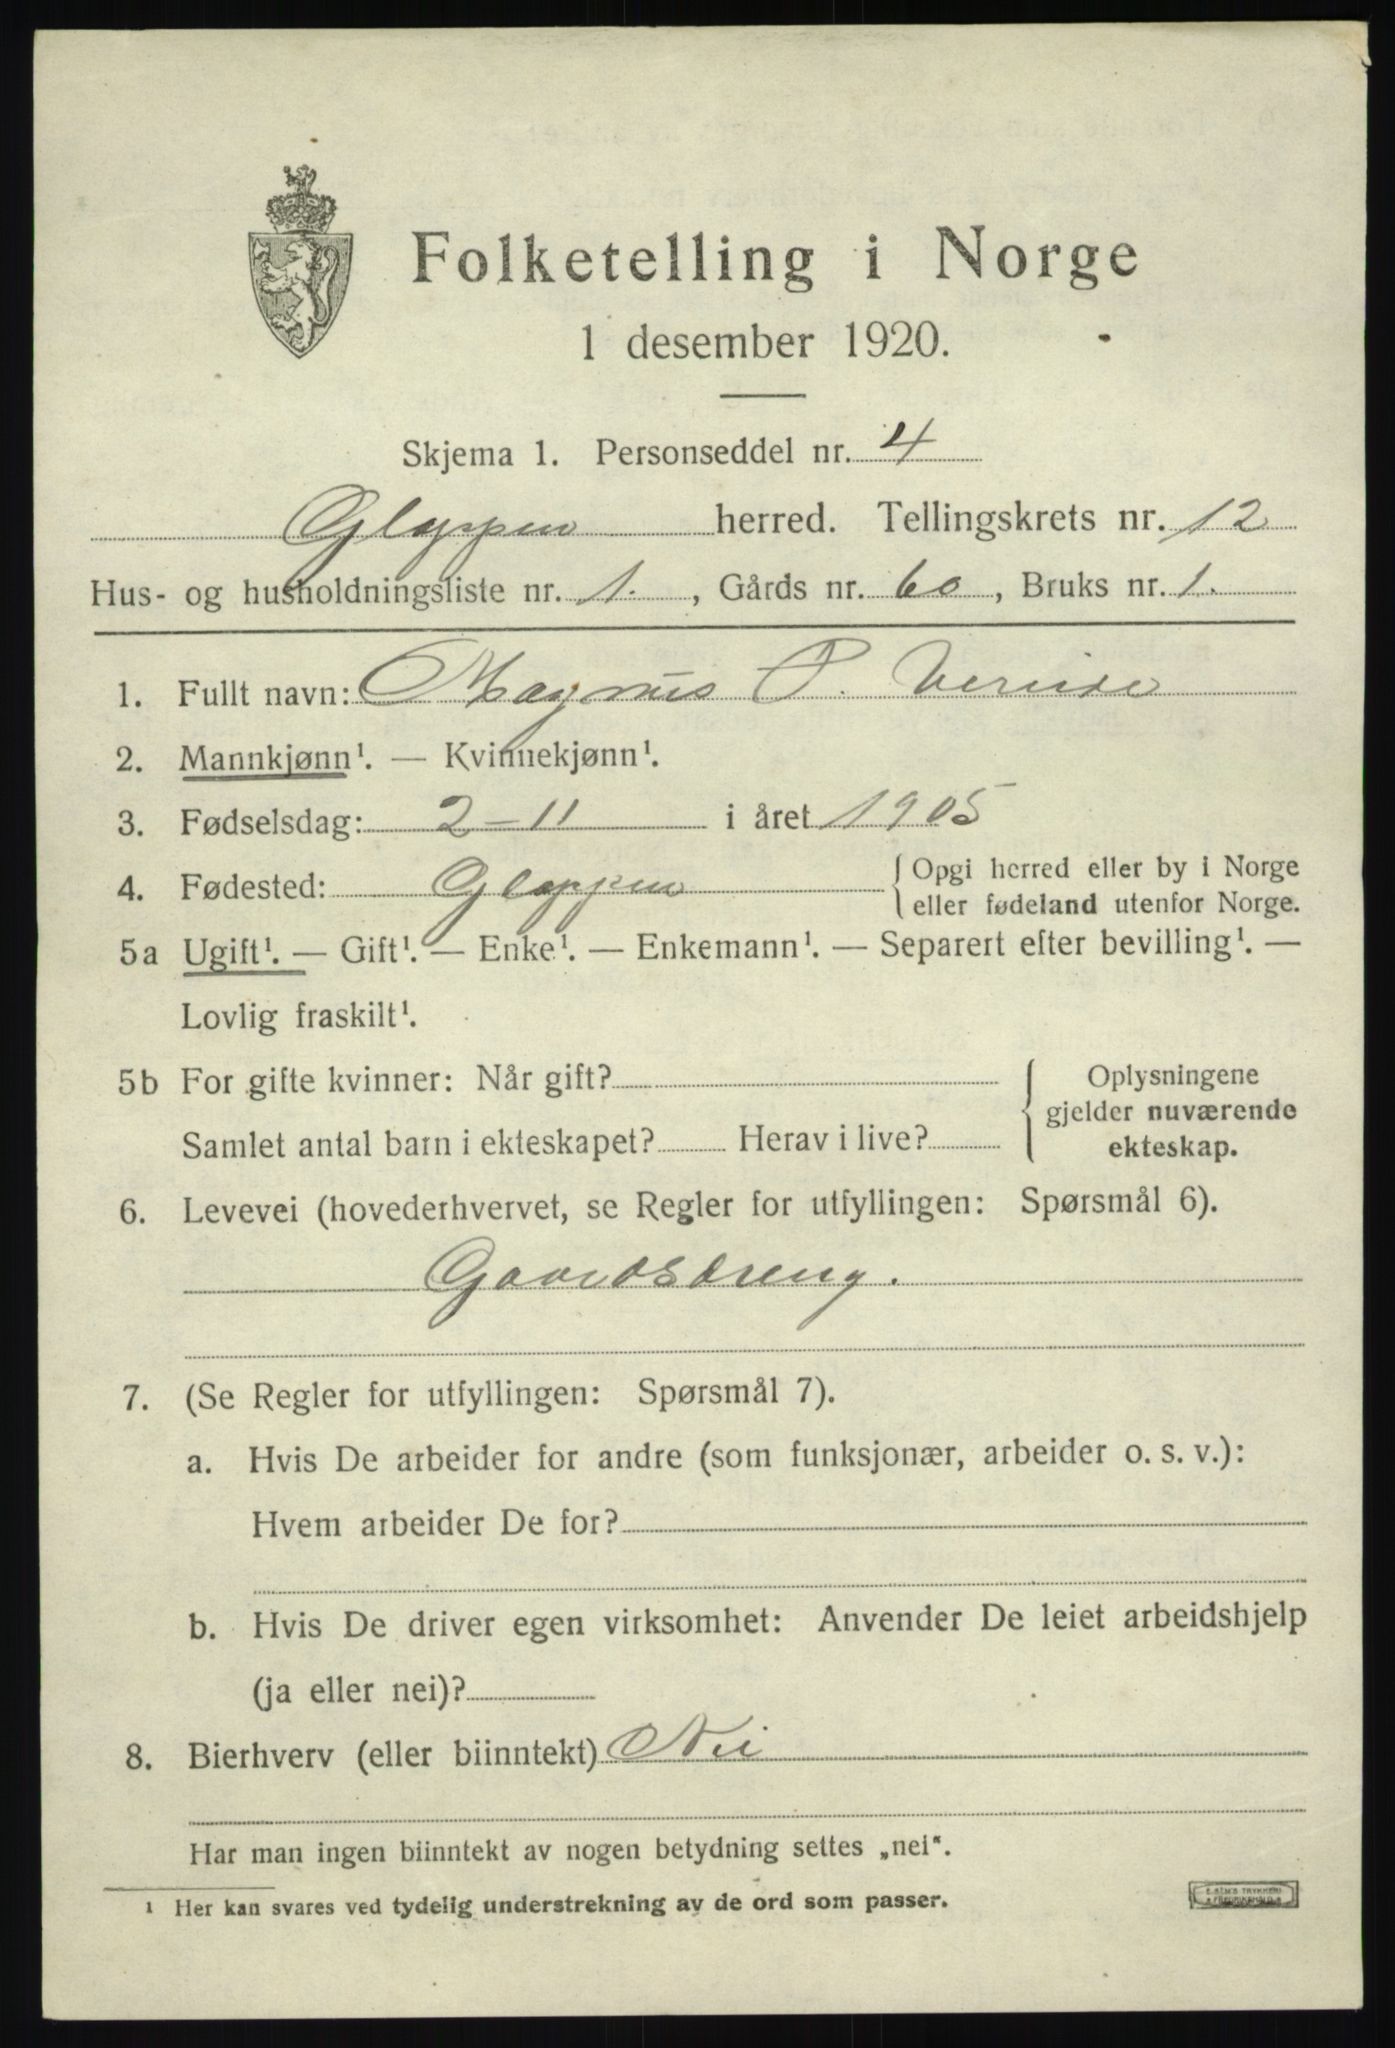 Folketelling i Norge
1 desember 1920.
Skjema 1. Personseddel nr. 4
Gloppen herred. Tellingskrets nr. 12
Hus- og husholdningsliste nr. 1. , Gårds nr. 60 , Bruks nr. 1.
1. Fullt navn: Magnus P.
2. Mannkjønn¹. — Kvinnekjønn¹.
3. Fødselsdag: 2-11 i året 1905
4. Fødested: Gloppen { Opgi herred eller by i Norge
eller fødeland utenfor Norge.
5a Ugift¹. — Gift¹. — Enke¹. — Enkemann¹. — Separert efter bevilling¹. —
Lovlig fraskilt¹.
5b For gifte kvinner: Når gift? { Oplysningene
gjelder nuværende
Samlet antal barn i ekteskapet? Herav i live? ekteskap.
6. Levevei (hovederhvervet, se Regler for utfyllingen: Spørsmål 6).
Gaardsdreng.
7. (Se Regler for utfyllingen: Spørsmål 7).
a. Hvis De arbeider for andre (som funksjonær, arbeider o. s. v.):
Hvem arbeider De for?
b. Hvis De driver egen virksomhet: Anvender De leiet arbeidshjelp
(ja eller nei)?
8. Bierhverv (eller biinntekt) Nei
Har man ingen biinntekt av nogen betydning settes „nei“.
¹ Her kan svares ved tydelig understrekning av de ord som passer.